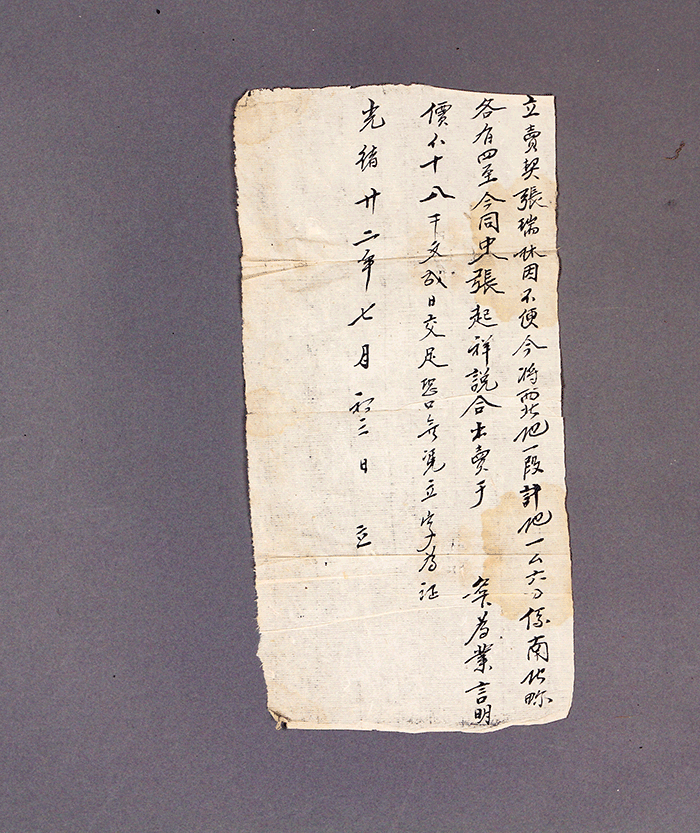 立賣契張瑞林因不便今将西北地一段計地一厶六分係南北畛
各有四至今同中張起祥説合出賣于 名為業言明
價不十八千文成日交足恐口無凴立字為证
光緒廿二年七月初三日 立